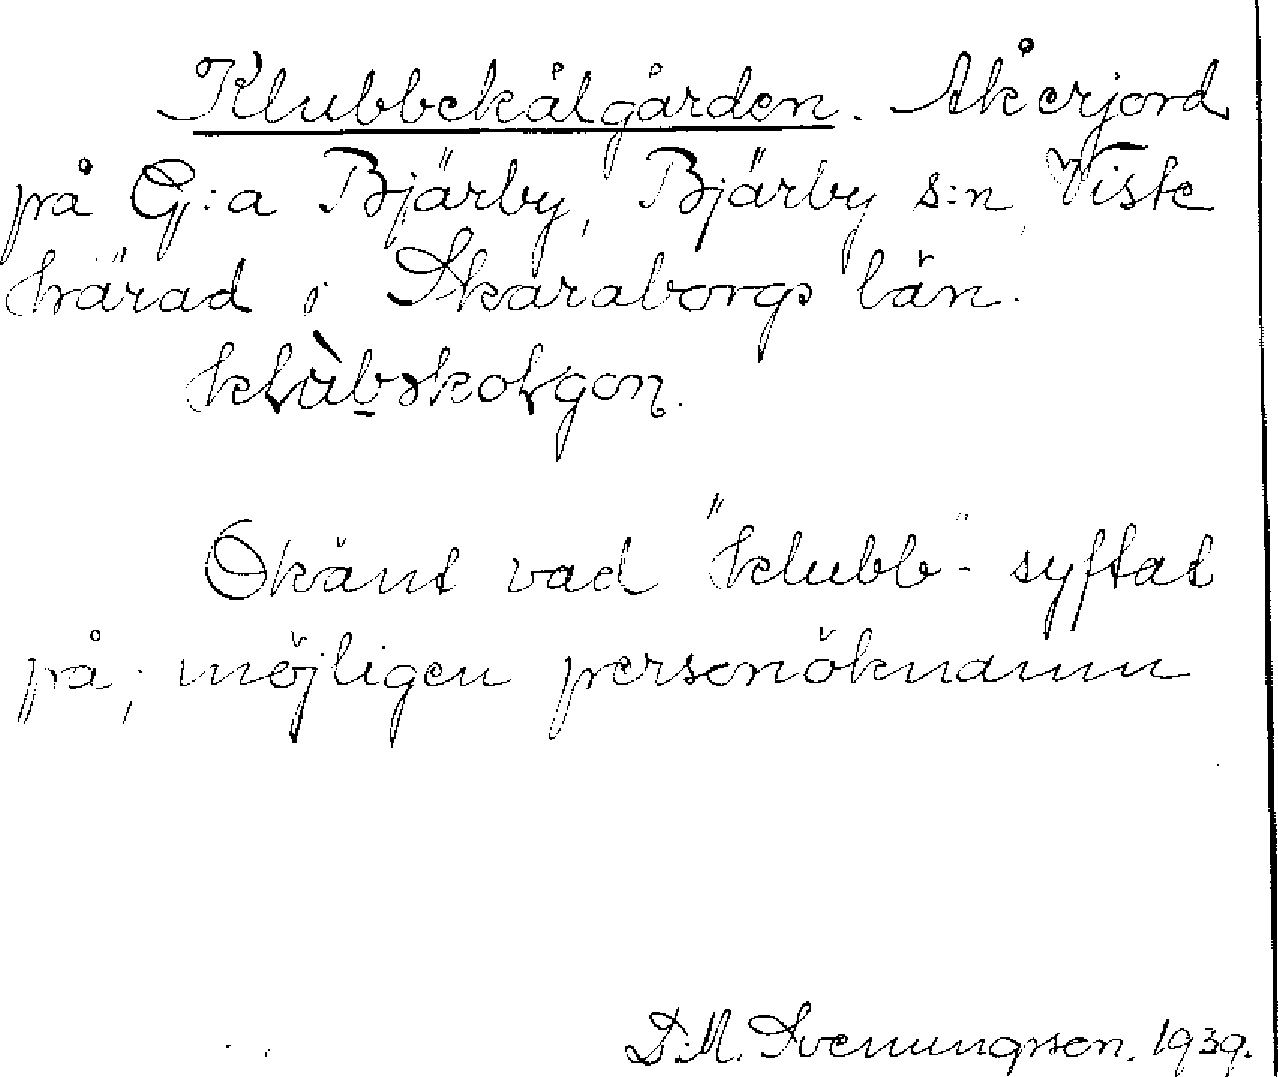 Klubbekålgården. Åkerjord
på G:a Bjärby, Bjärby s:n, Viste
härad i Skaraborgs län.
Okänt vad "klubb"- syftat
på; möjligen personöknamn
D.M. Svenungsson. 1939.